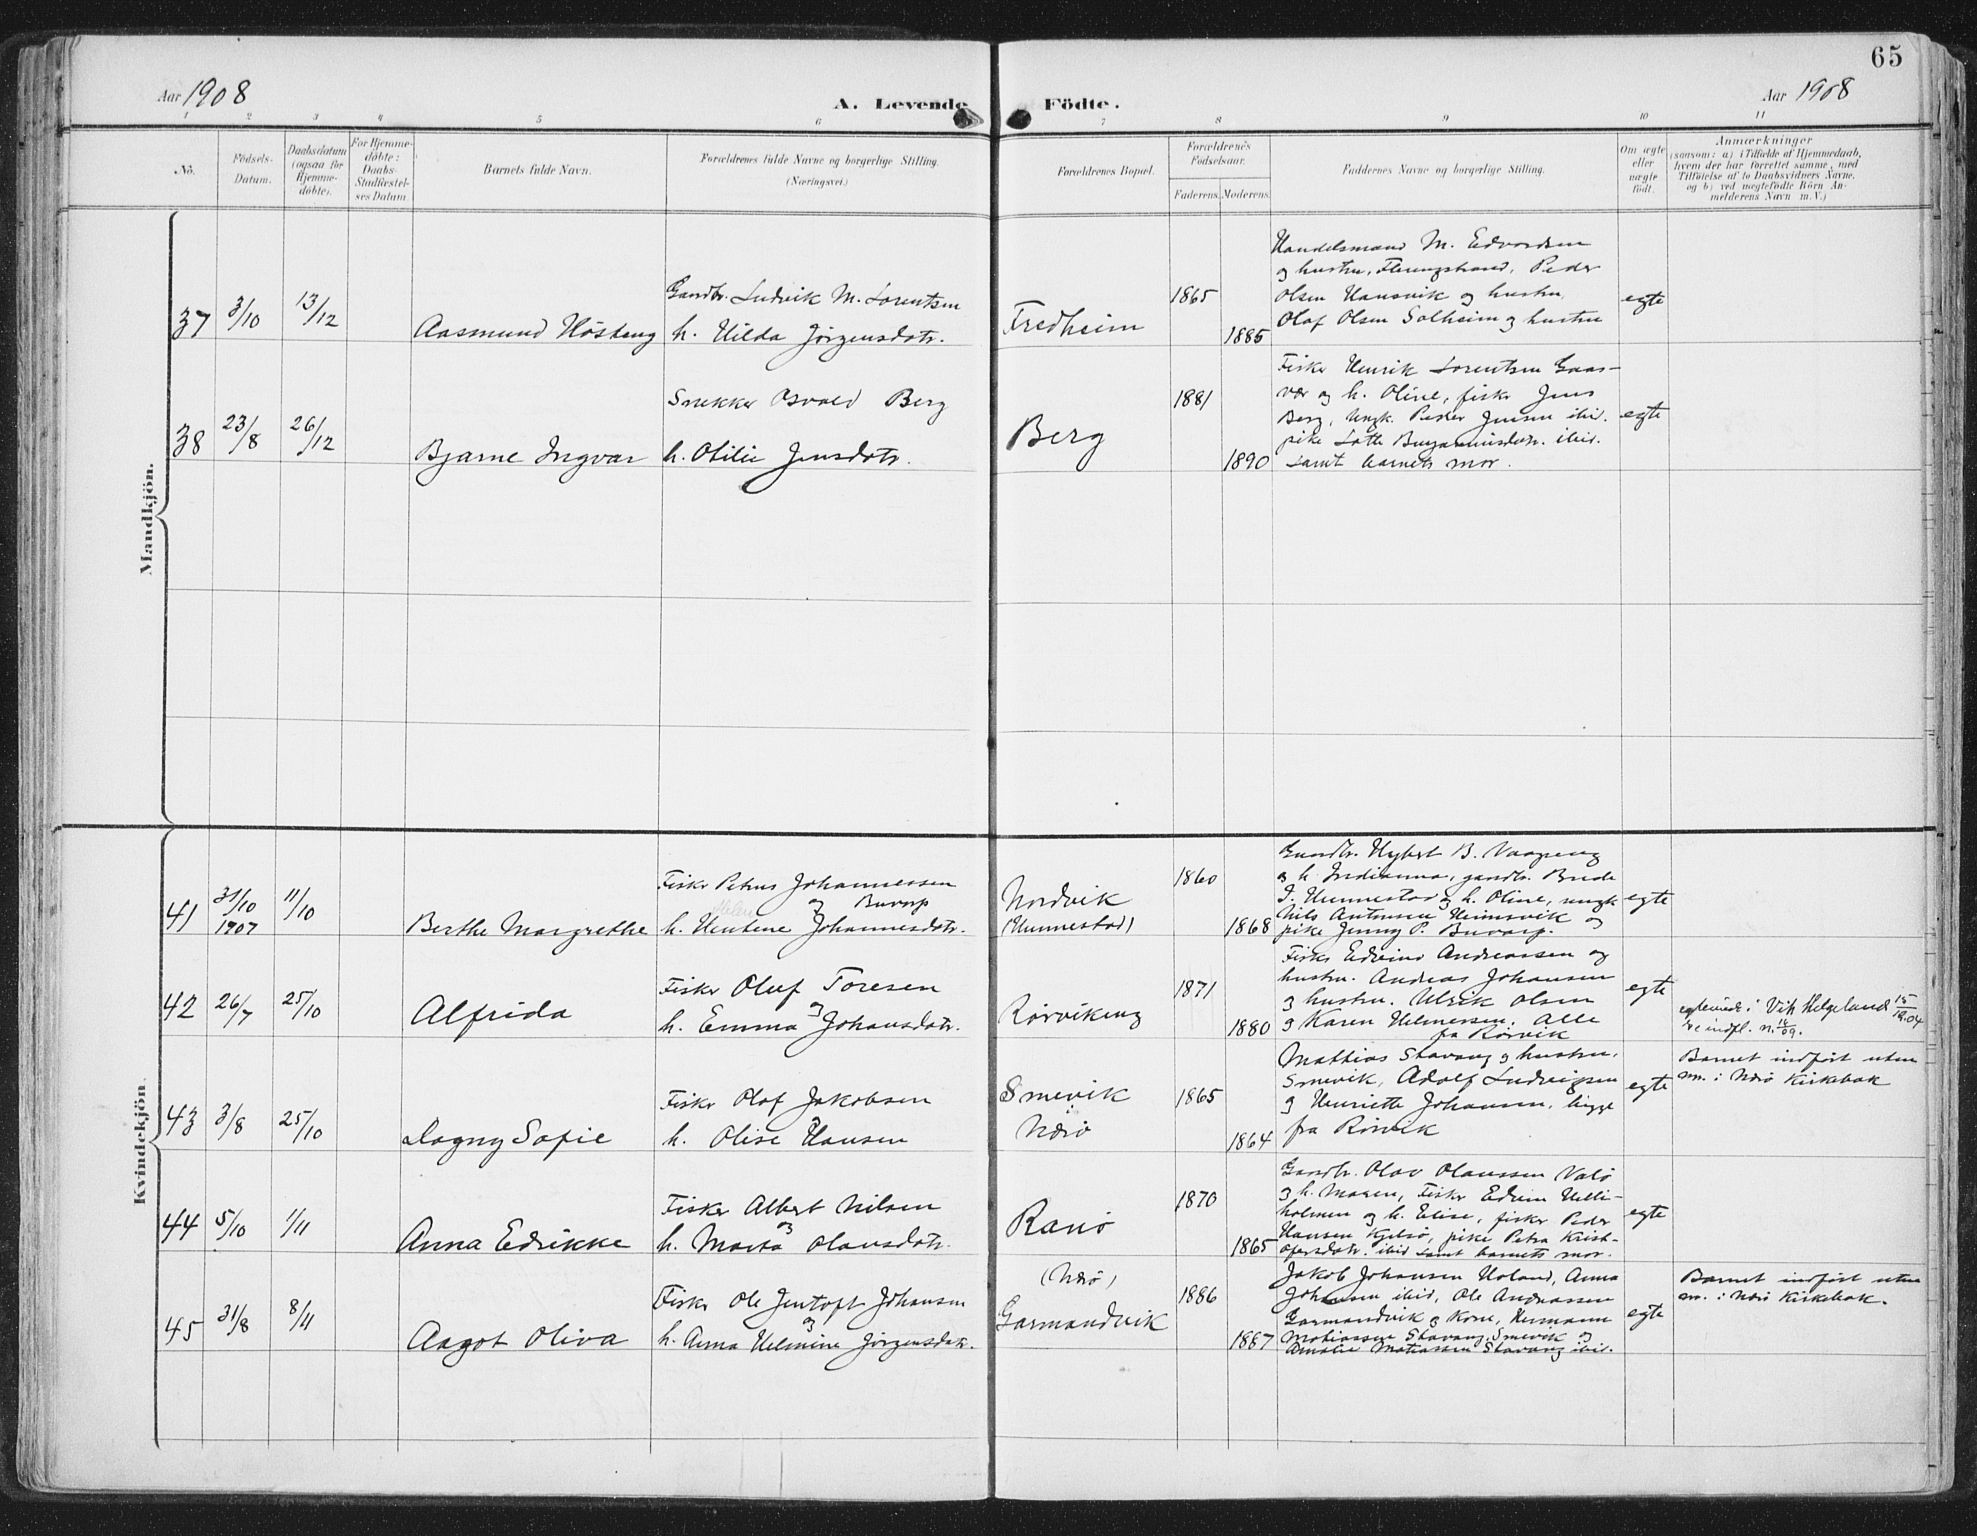 65
Aar 1908
A. Levende Födte.
Aar 1908
1 2 3 4 5 6 7 8 9 10 11
No.
Födsels-Datum.
Daabsdatum (ogsaa for Hjemme-döbte).
For Hjemme-döbte: Daabs-Stadfæstel-ses Datum
Barnets fulde Navn.
Forældrenes fulde Navne og borgerlige Stilling.
(Næringsvei.)
Forældrenes Bopæl.
Forældrenes Fødselsaar.
Faderens. Moderens.
Faddernes Navne og borgerlige Stilling.
Om ægte eller uægte födt.
Anmærkninger
(saasom: a) i Tilfælde af Hjemmedaab,
hvem der har forrettet samme, med
Tilföielse af to Daabsvidners Navne,
og b) ved uægtefödte Börn An-
melderens Navn m.V.)
Mandkjön.
37 3/10 13/12 Aasmund Høsteng
Gaardbr. Ludvik M. Lorentsen
h. Hilda Jørgensdatr.
Fredheim
1865
1885
Handelsmand M. Edvardsen
og hustru, Peder
Olsen Hansvik og hustru,
Olaf Olsen Solheim og hustru
egte
38 23/8 26/12 Bjarne Ingvar
Snekker Osvald Berg
h. Otilie Jensdatr.
Berg
1881
1890
Fisker Henrik Lorentsen Gaas-
vær og h. Oline, fisker Jens
Berg, Ungk. Peder Jensen ibid.
pike Lotte Benjaminsdatr. ibid.
samt barnets mor.
egte
Kvindekjön.
41 31/10 1907 11/10 Berthe Margrethe
Fisker Petrus Johannessen
og Buvarp
h. Johannesdatr.
Nordvik
(Hunnestad)
1860
1868
Gaardbr. B.
og h. Indianna, gaardbr.
J. Hunnestad og h. Oline, ungk
Nils Antonsen Heimsvik og
pike Jenny P. Buvarp.
egte
42 26/7 25/10 Alfrida
Fisker Oluf Toresen
og
h. Emma Johansdatr.
Rørvikeng
1871
1880
Fisker Edvind Andreassen og
hustru. Andreas Johansen
og hustru. Ulrik Olsen
og Karen Helmersen. Alle
fra Rørvik
egte
i Vik Helgeland 15/12.04
43 3/8 25/10 Dagny Sofie
Fisker Olaf Jakobsen
og
h. Olise Hansen
Smevik
i
Nærø
1865
1864
Mathias Stavang og hustru,
Smevik, Adolf Ludvigsen
og Henriette Johansen, begge
fra Rørvik
egte
Barnet indført uten
nr. i Nærø Kirkebok
44 5/10 1/11 Anna Edrikke
Fisker Albert Nilsen
og
h. Marta Olausdatr.
Ranø
1870
1865
Gaardbr. Olav Olaussen Valø
og h. Maren, Fisker Edvin Helli-
holmen og h. Elise, fisker Peder
Hansen Kjelsø, pike Petra Krist-
ofersdatr. ibid samt barnets mor.
egte
45 31/8 8/11 Aagot Oliva
Fisker Ole Jentoft Johansen
og
h. Anna Helmine Jørgensdatr.
(Nærø)
Garmandvik
1886
1887
Jakob Johansen Holand, Anna
Johansen ibid, Ole Andreassen
Garmandvik og Kone, Hermann
Mathiassen Stavang, Smevik og
Amalie Matiassen Stavang ibid.
egte
Barnet indført uten
nr. i Nærø Kirkebok.